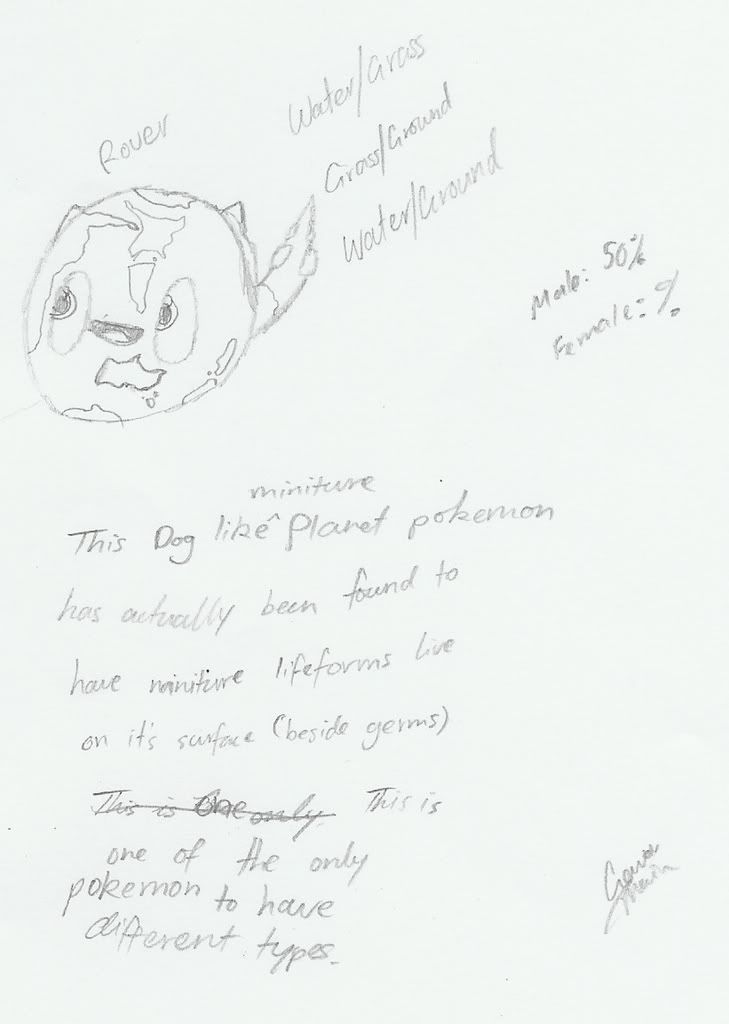 Rover
Water/Grass
Grass/Ground
Water/Ground
Male: 50%
Female: %
miniture
This Dog like ^ Planet pokemon
has actually been found to
have miniture lifeforms live
on it's surface (beside germs)
This is One only. This is
one of the only
pokemon to have
different types.